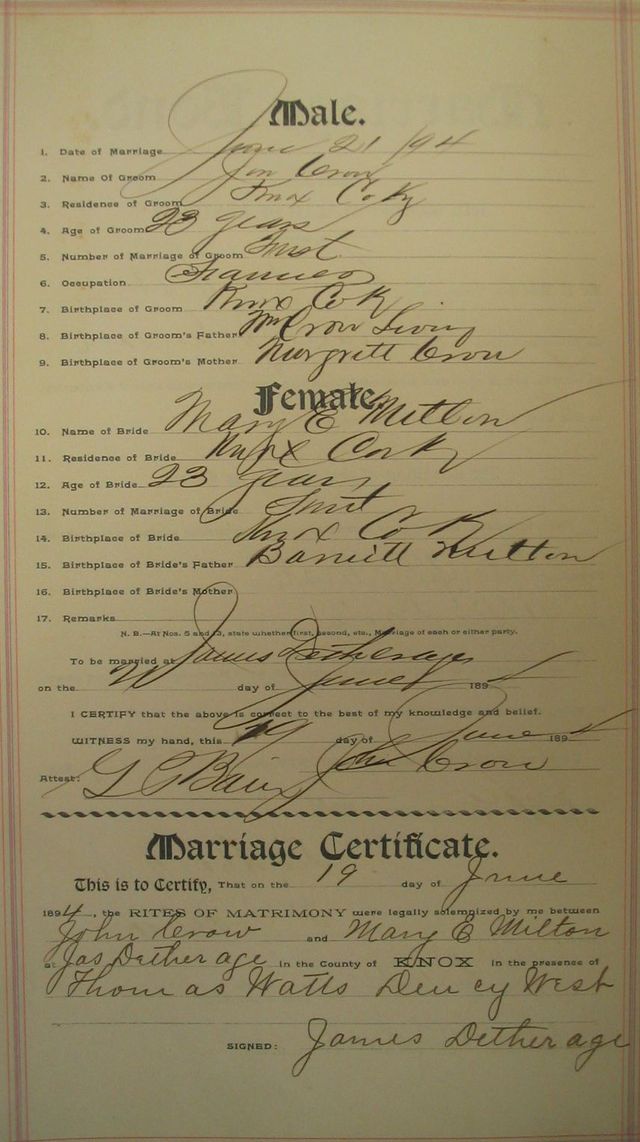 Male.
1. Date of Marriage June 21 / 94
2. Name Of Groom Jon Crow
3. Residence of Groom Knox Co Ky
4. Age of Groom 23 years
5. Number of Marriage of Groom First
6. Occupation
7. Birthplace of Groom Knox Co K
8. Birthplace of Groom's Father Wm Crow Living
9. Birthplace of Groom's Mother Margrett Crow
Female.
10. Name of Bride Mary E Milton
11. Residence of Bride Knox Co Ky
12. Age of Bride 23 years
13. Number of Marriage of Bride First
14. Birthplace of Bride Knox Co K
15. Birthplace of Bride's Father Milton
16. Birthplace of Bride's Mother
17. Remarks
N. B.—At Nos. 5 and 13, state whether first, second, etc., Marriage of each or either party.
To be married at James Detherage
on the day of June 1894
I CERTIFY that the above is correct to the best of my knowledge and belief.
WITNESS my hand, this day of June 1894
Attest: John Crow
Marriage Certificate.
This is to Certify, That on the 19 day of June
1894, the RITES OF MATRIMONY were legally solemnized by me between
John Crow and Mary E Milton
at Jas Detherage in the County of KNOX in the presence of
Thomas Watts Dency West
SIGNED: James Detherage